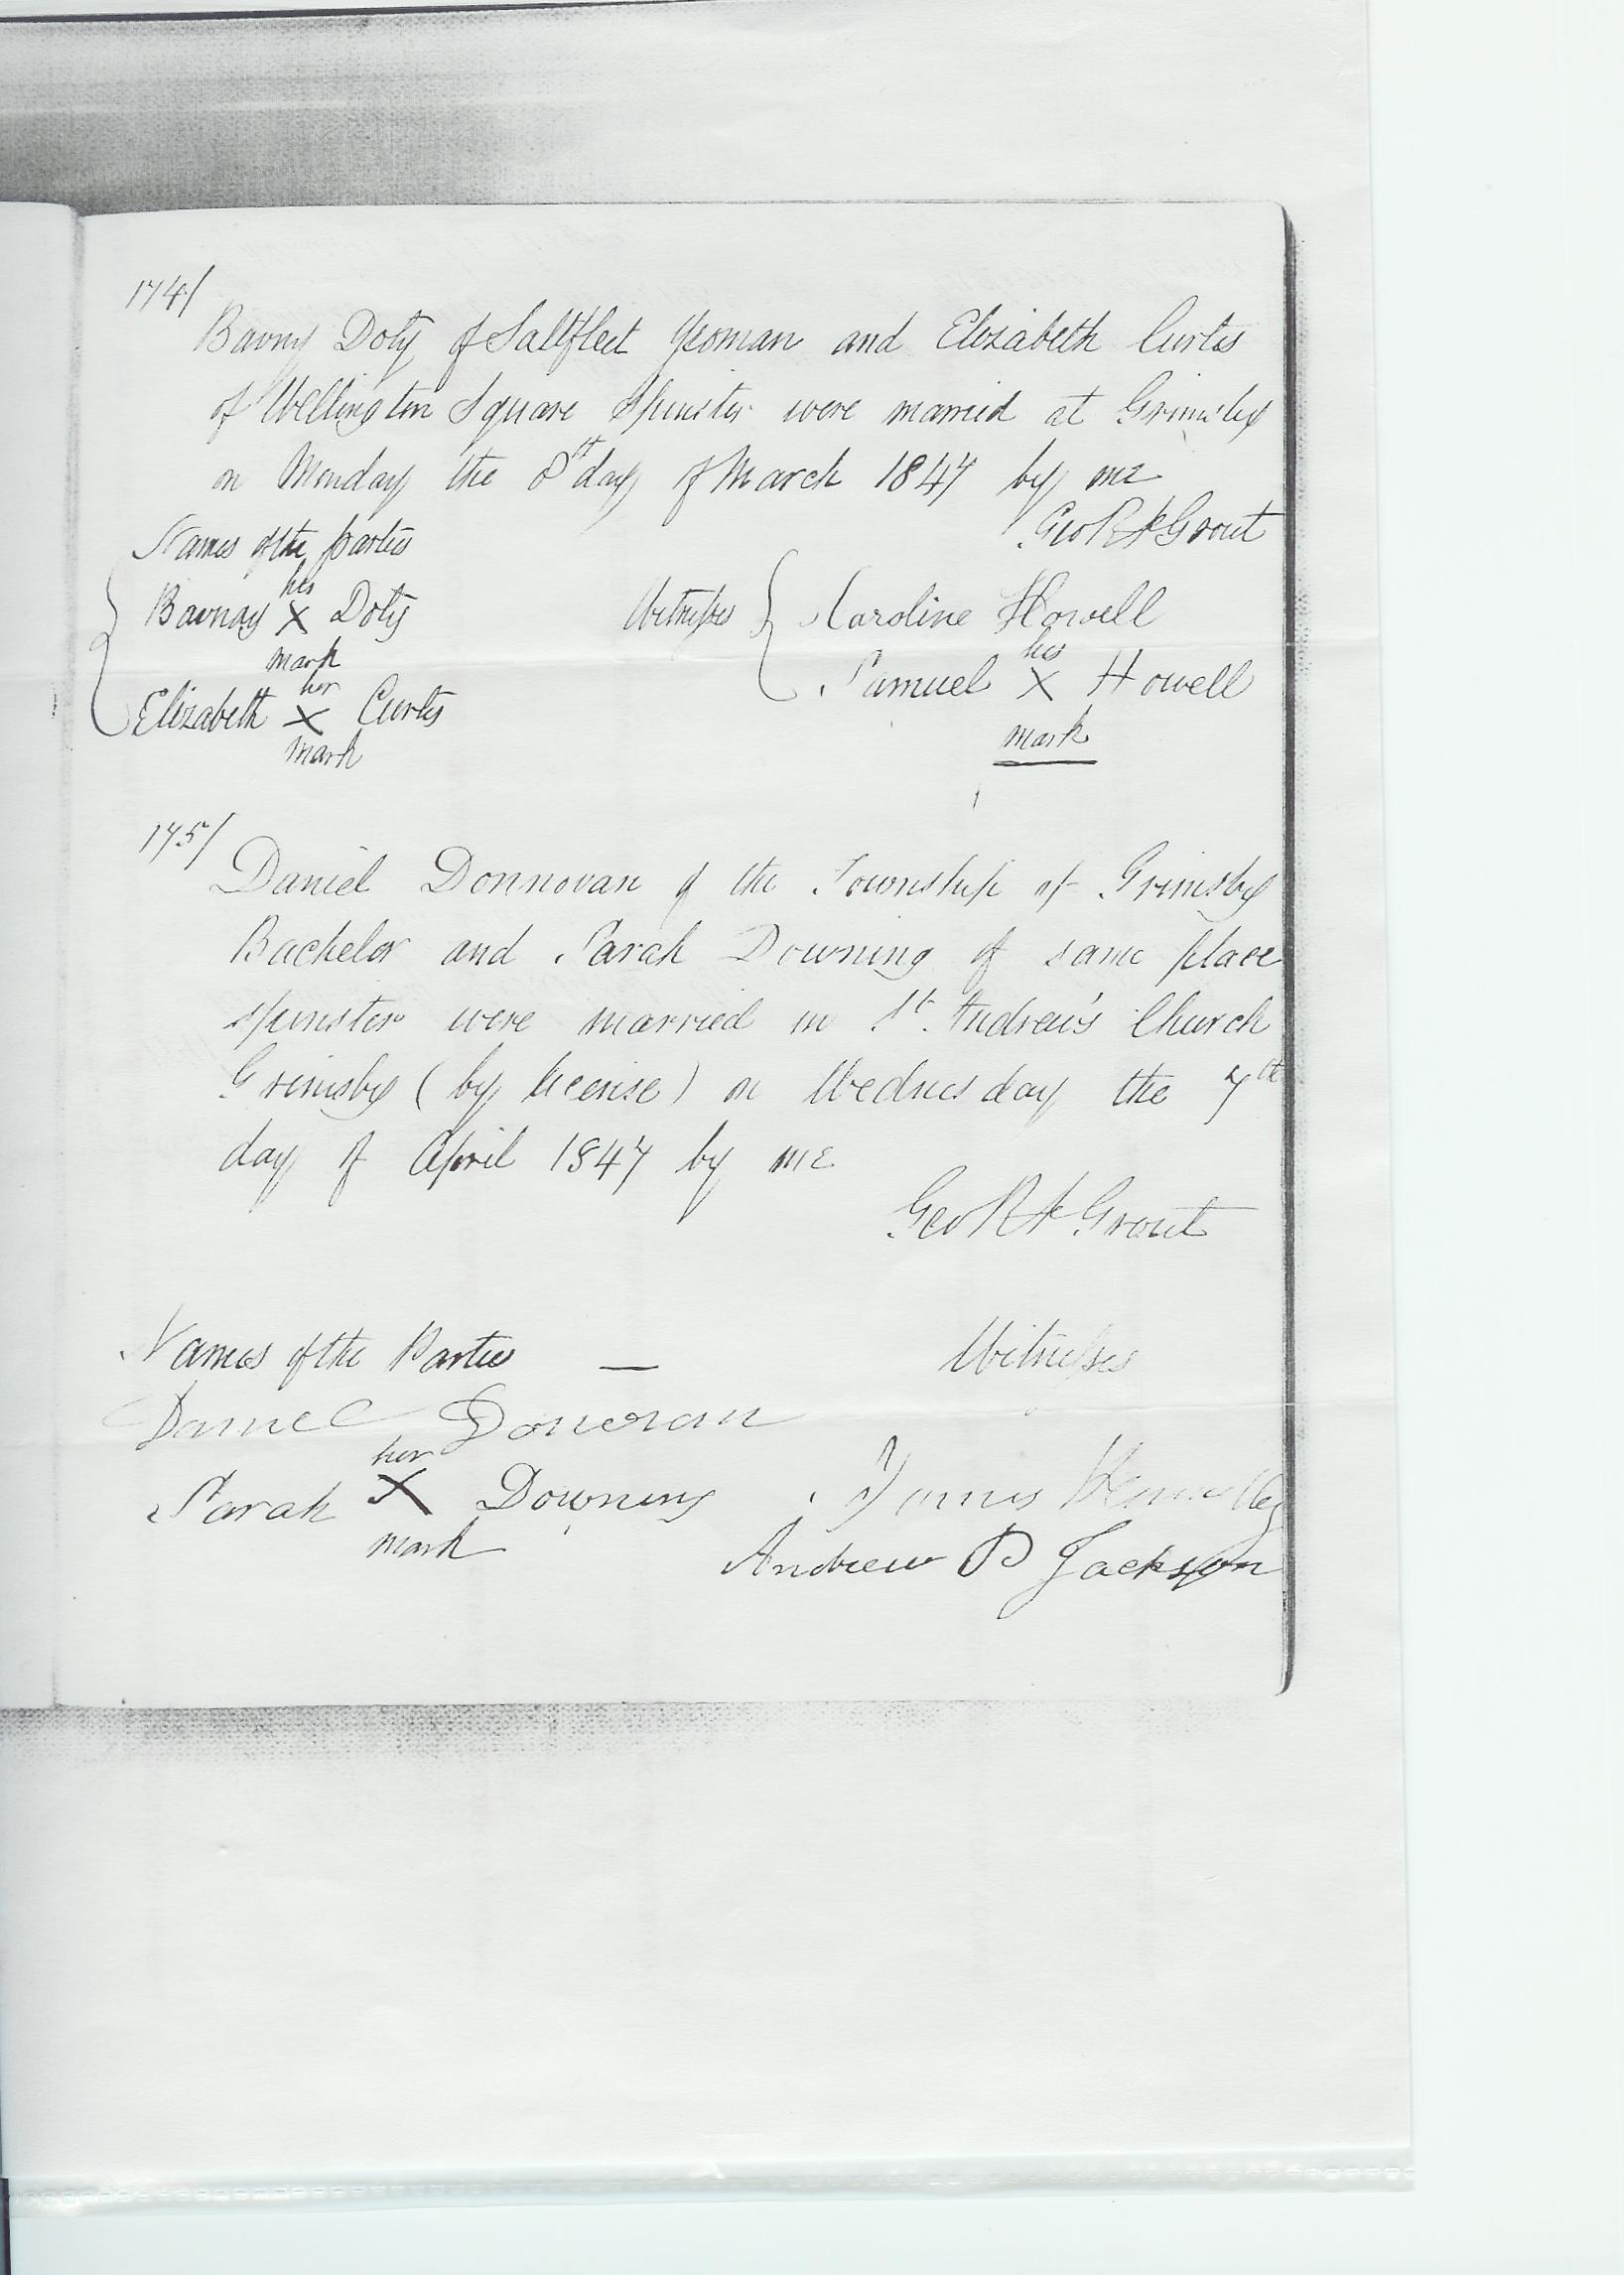 174/
Barny Doty of Saltfleet Yeoman and Elizabeth Curtis
of Wellington Square Spinster were married at Grimsby
on Monday the 8th day of March 1847 by me
Geo R F Grout
Names of the parties
his
Barnay X Doty
mark
her
Elizabeth X Curtis
mark
Witnesses
Caroline Howell
his
Samuel X Howell
mark
175/
Daniel Donnovan of the Township of Grimsby
Bachelor and Sarah Downing of same place
spinster were married in St. Andrew's Church
Grimsby (by license) on Wednesday the 7th
day of April 1847 by me
Geo R F Grout
Names of the Parties — Witnesses
Daniel Donovan
her
Sarah X Downing
mark
Andrew P Jackson